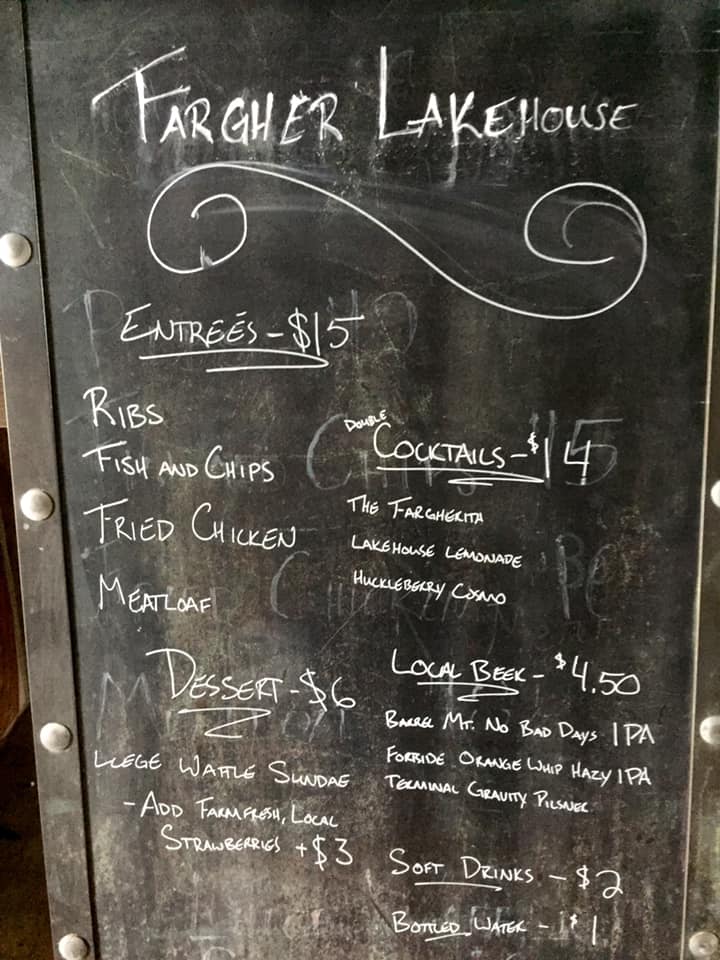 FARGHER LAKEHOUSE
ENTREÉS - $15
RIBS
FISH AND CHIPS
FRIED CHICKEN
MEATLOAF
DOUBLE
COCKTAILS - $14
THE FARGHERITA
LAKEHOUSE LEMONADE
HUCKLEBERRY COSMO
DESSERT - $6
LIEGE WAFFLE SUNDAE
- ADD FARMFRESH, LOCAL
STRAWBERRIES + $3
LOCAL BEER - $4.50
BARREL MT. NO BAD DAYS IPA
FORTSIDE ORANGE WHIP HAZY IPA
TERMINAL GRAVITY PILSNER
SOFT DRINKS - $2
BOTTLED WATER - $1